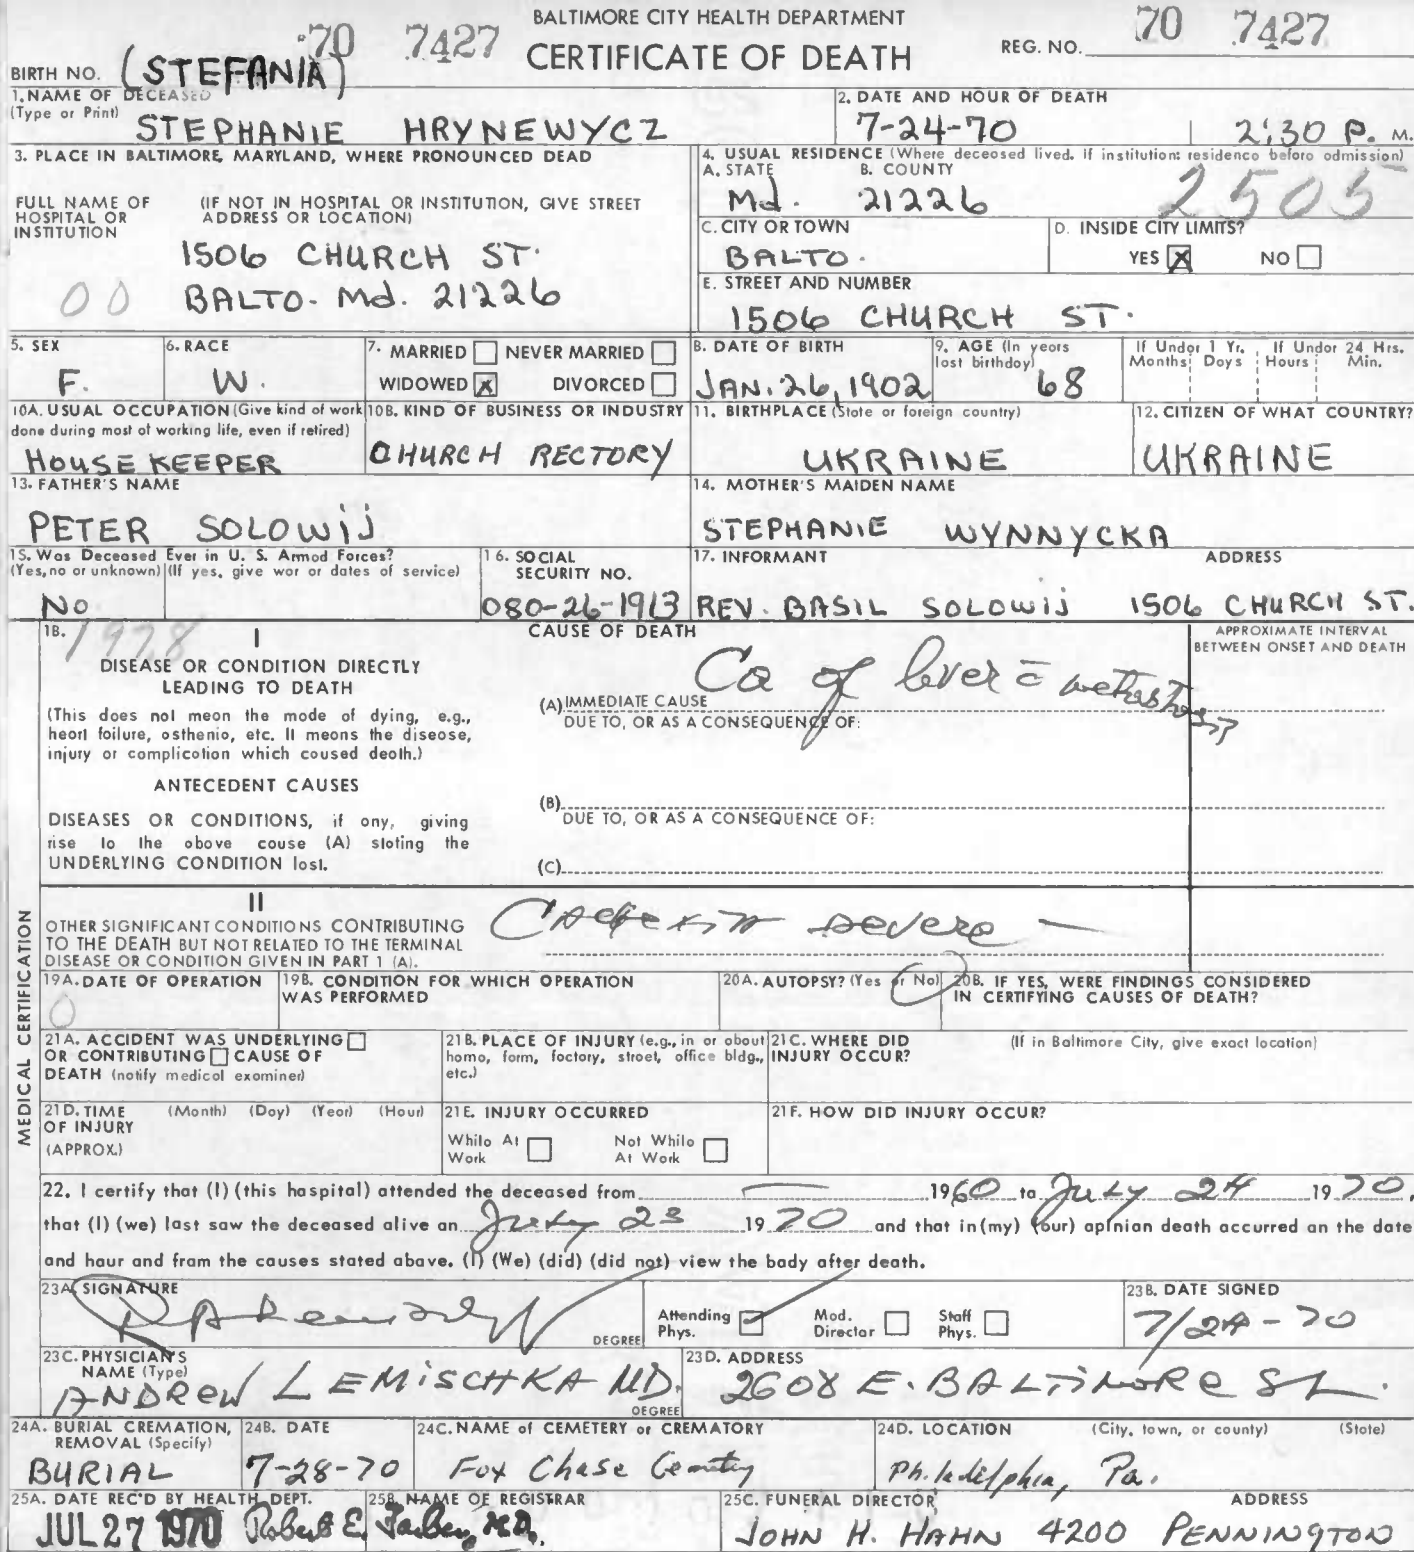 BALTIMORE CITY HEALTH DEPARTMENT
70 7427 CERTIFICATE OF DEATH REG. NO. 70 7427
BIRTH NO. (STEFANIA)
1. NAME OF DECEASED
(Type or Print) STEPHANIE HRYNEWYCZ
2. DATE AND HOUR OF DEATH
7-24-70 2:30 P. M.
3. PLACE IN BALTIMORE, MARYLAND, WHERE PRONOUNCED DEAD
FULL NAME OF HOSPITAL OR INSTITUTION
(IF NOT IN HOSPITAL OR INSTITUTION, GIVE STREET ADDRESS OR LOCATION)
1506 CHURCH ST.
00 BALTO. Md. 21226
4. USUAL RESIDENCE (Where deceased lived. If institution: residence before admission)
A. STATE B. COUNTY
Md. 21226 2505
C. CITY OR TOWN D. INSIDE CITY LIMITS?
BALTO. YES X NO
E. STREET AND NUMBER
1506 CHURCH ST.
5. SEX
F.
6. RACE
W.
7. MARRIED NEVER MARRIED
WIDOWED X DIVORCED
8. DATE OF BIRTH
JAN. 26, 1902
9. AGE (In years last birthday)
68
If Under 1 Yr. If Under 24 Hrs.
Months Days Hours Min.
10A. USUAL OCCUPATION (Give kind of work done during most of working life, even if retired)
HOUSE KEEPER
10B. KIND OF BUSINESS OR INDUSTRY
CHURCH RECTORY
11. BIRTHPLACE (State or foreign country)
UKRAINE
12. CITIZEN OF WHAT COUNTRY?
UKRAINE
13. FATHER'S NAME
PETER SOLOWIJ
14. MOTHER'S MAIDEN NAME
STEPHANIE WYNNYCKA
15. Was Deceased Ever in U. S. Armed Forces?
(Yes, no or unknown) (If yes, give war or dates of service)
No
16. SOCIAL SECURITY NO.
080-26-1913
17. INFORMANT ADDRESS
REV. BASIL SOLOWIJ 1506 CHURCH ST.
18. 1978 I
DISEASE OR CONDITION DIRECTLY
LEADING TO DEATH
(This does not mean the mode of dying, e.g.,
heart failure, asthenia, etc. It means the disease,
injury or complication which caused death.)
ANTECEDENT CAUSES
DISEASES OR CONDITIONS, if any, giving
rise to the above cause (A) stating the
UNDERLYING CONDITION last.
CAUSE OF DEATH
Ca of liver c̄ metastasis
(A) IMMEDIATE CAUSE
DUE TO, OR AS A CONSEQUENCE OF:
(B)
DUE TO, OR AS A CONSEQUENCE OF:
(C)
APPROXIMATE INTERVAL
BETWEEN ONSET AND DEATH
MEDICAL CERTIFICATION
II
OTHER SIGNIFICANT CONDITIONS CONTRIBUTING
TO THE DEATH BUT NOT RELATED TO THE TERMINAL
DISEASE OR CONDITION GIVEN IN PART 1 (A).
severe —
19A. DATE OF OPERATION
0
19B. CONDITION FOR WHICH OPERATION WAS PERFORMED
20A. AUTOPSY? (Yes or No)
20B. IF YES, WERE FINDINGS CONSIDERED IN CERTIFYING CAUSES OF DEATH?
21A. ACCIDENT WAS UNDERLYING
OR CONTRIBUTING CAUSE OF
DEATH (notify medical examiner)
21B. PLACE OF INJURY (e.g., in or about home, farm, factory, street, office bldg., etc.)
21C. WHERE DID INJURY OCCUR? (If in Baltimore City, give exact location)
21D. TIME OF INJURY (APPROX.) (Month) (Day) (Year) (Hour)
21E. INJURY OCCURRED
While At Work Not While At Work
21F. HOW DID INJURY OCCUR?
22. I certify that (I) (this hospital) attended the deceased from 1960 to July 24 1970,
that (I) (we) last saw the deceased alive on July 23 1970 and that in (my) (our) opinion death occurred on the date
and hour and from the causes stated above. (I) (We) (did) (did not) view the body after death.
23A. SIGNATURE
DEGREE
Attending Phys. Med. Director Staff Phys.
23B. DATE SIGNED
7/24-70
23C. PHYSICIAN'S NAME (Type)
ANDREW LEMISCHKA MD.
DEGREE
23D. ADDRESS
2608 E. BALTIMORE St.
24A. BURIAL CREMATION, REMOVAL (Specify)
BURIAL
24B. DATE
7-28-70
24C. NAME of CEMETERY or CREMATORY
Fox Chase Cemetery
24D. LOCATION (City, town, or county) (State)
Philadelphia, Pa.
25A. DATE REC'D BY HEALTH DEPT.
JUL 27 1970
25B. NAME OF REGISTRAR
Robert E. Farber, M.D.
25C. FUNERAL DIRECTOR ADDRESS
JOHN H. HAHN 4200 PENNINGTON